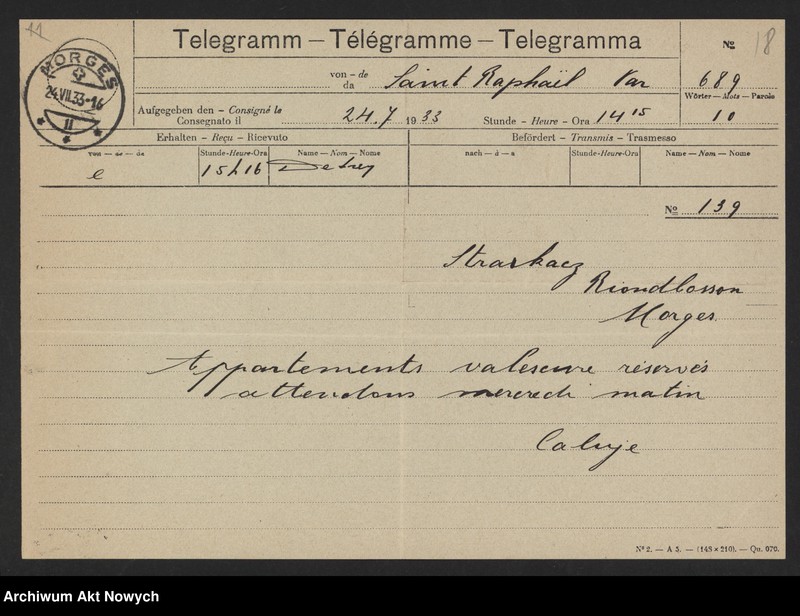 11
18
MORGES
24.VII.33-16
11
Telegramm — Télégramme — Telegramma
№
von – de
da
Saint Raphaël Var
689
Wörter — Mots — Parole
Aufgegeben den – Consigné le
Consegnato il
24.7 1933
Stunde – Heure – Ora 14 15
10
Erhalten – Reçu – Ricevuto
Befördert – Transmis – Trasmesso
von — de — da
Stunde-Heure-Ora
Name — Nom — Nome
nach — à — a
Stunde-Heure-Ora
Name — Nom — Nome
e
15h16
№ 139
Straskacz
Riondbosson
Morges
Appartements valescure réservés
attendons mercredi matin
№ 2. — A 5. — (148 × 210). — Qu. 070.
Archiwum Akt Nowych